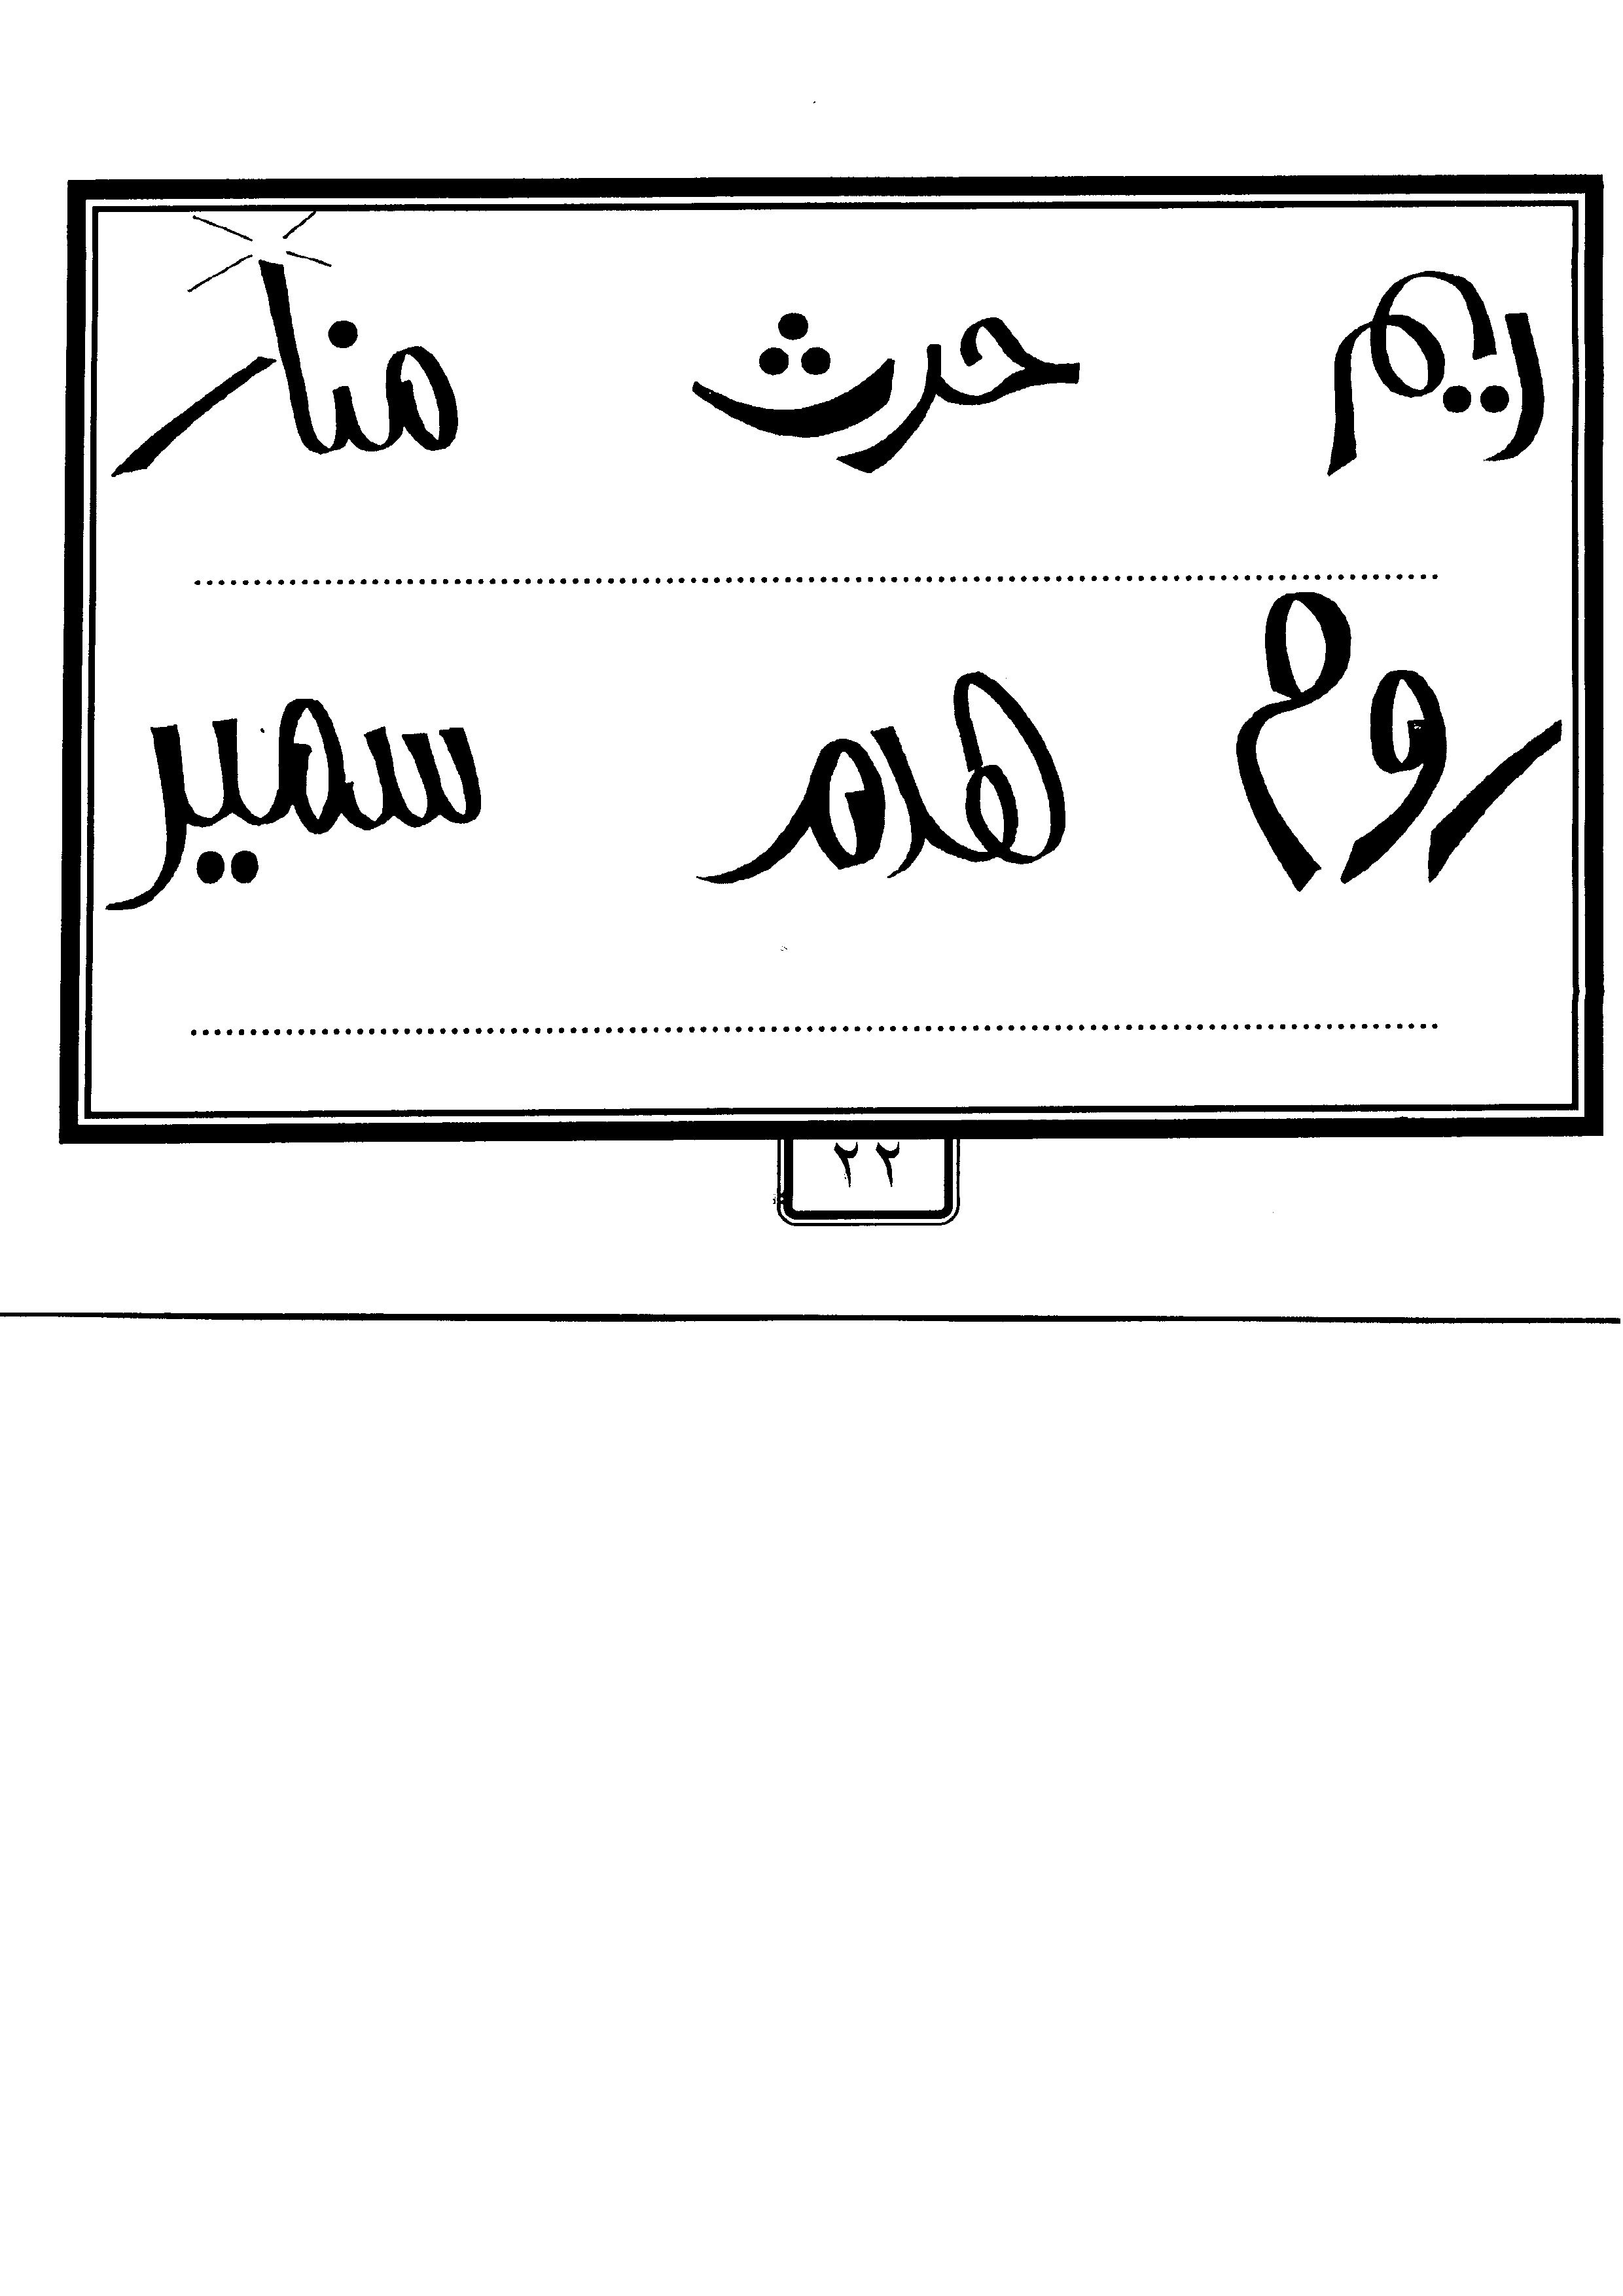 ريم حرث منار
روم هرم سمير
٢٢